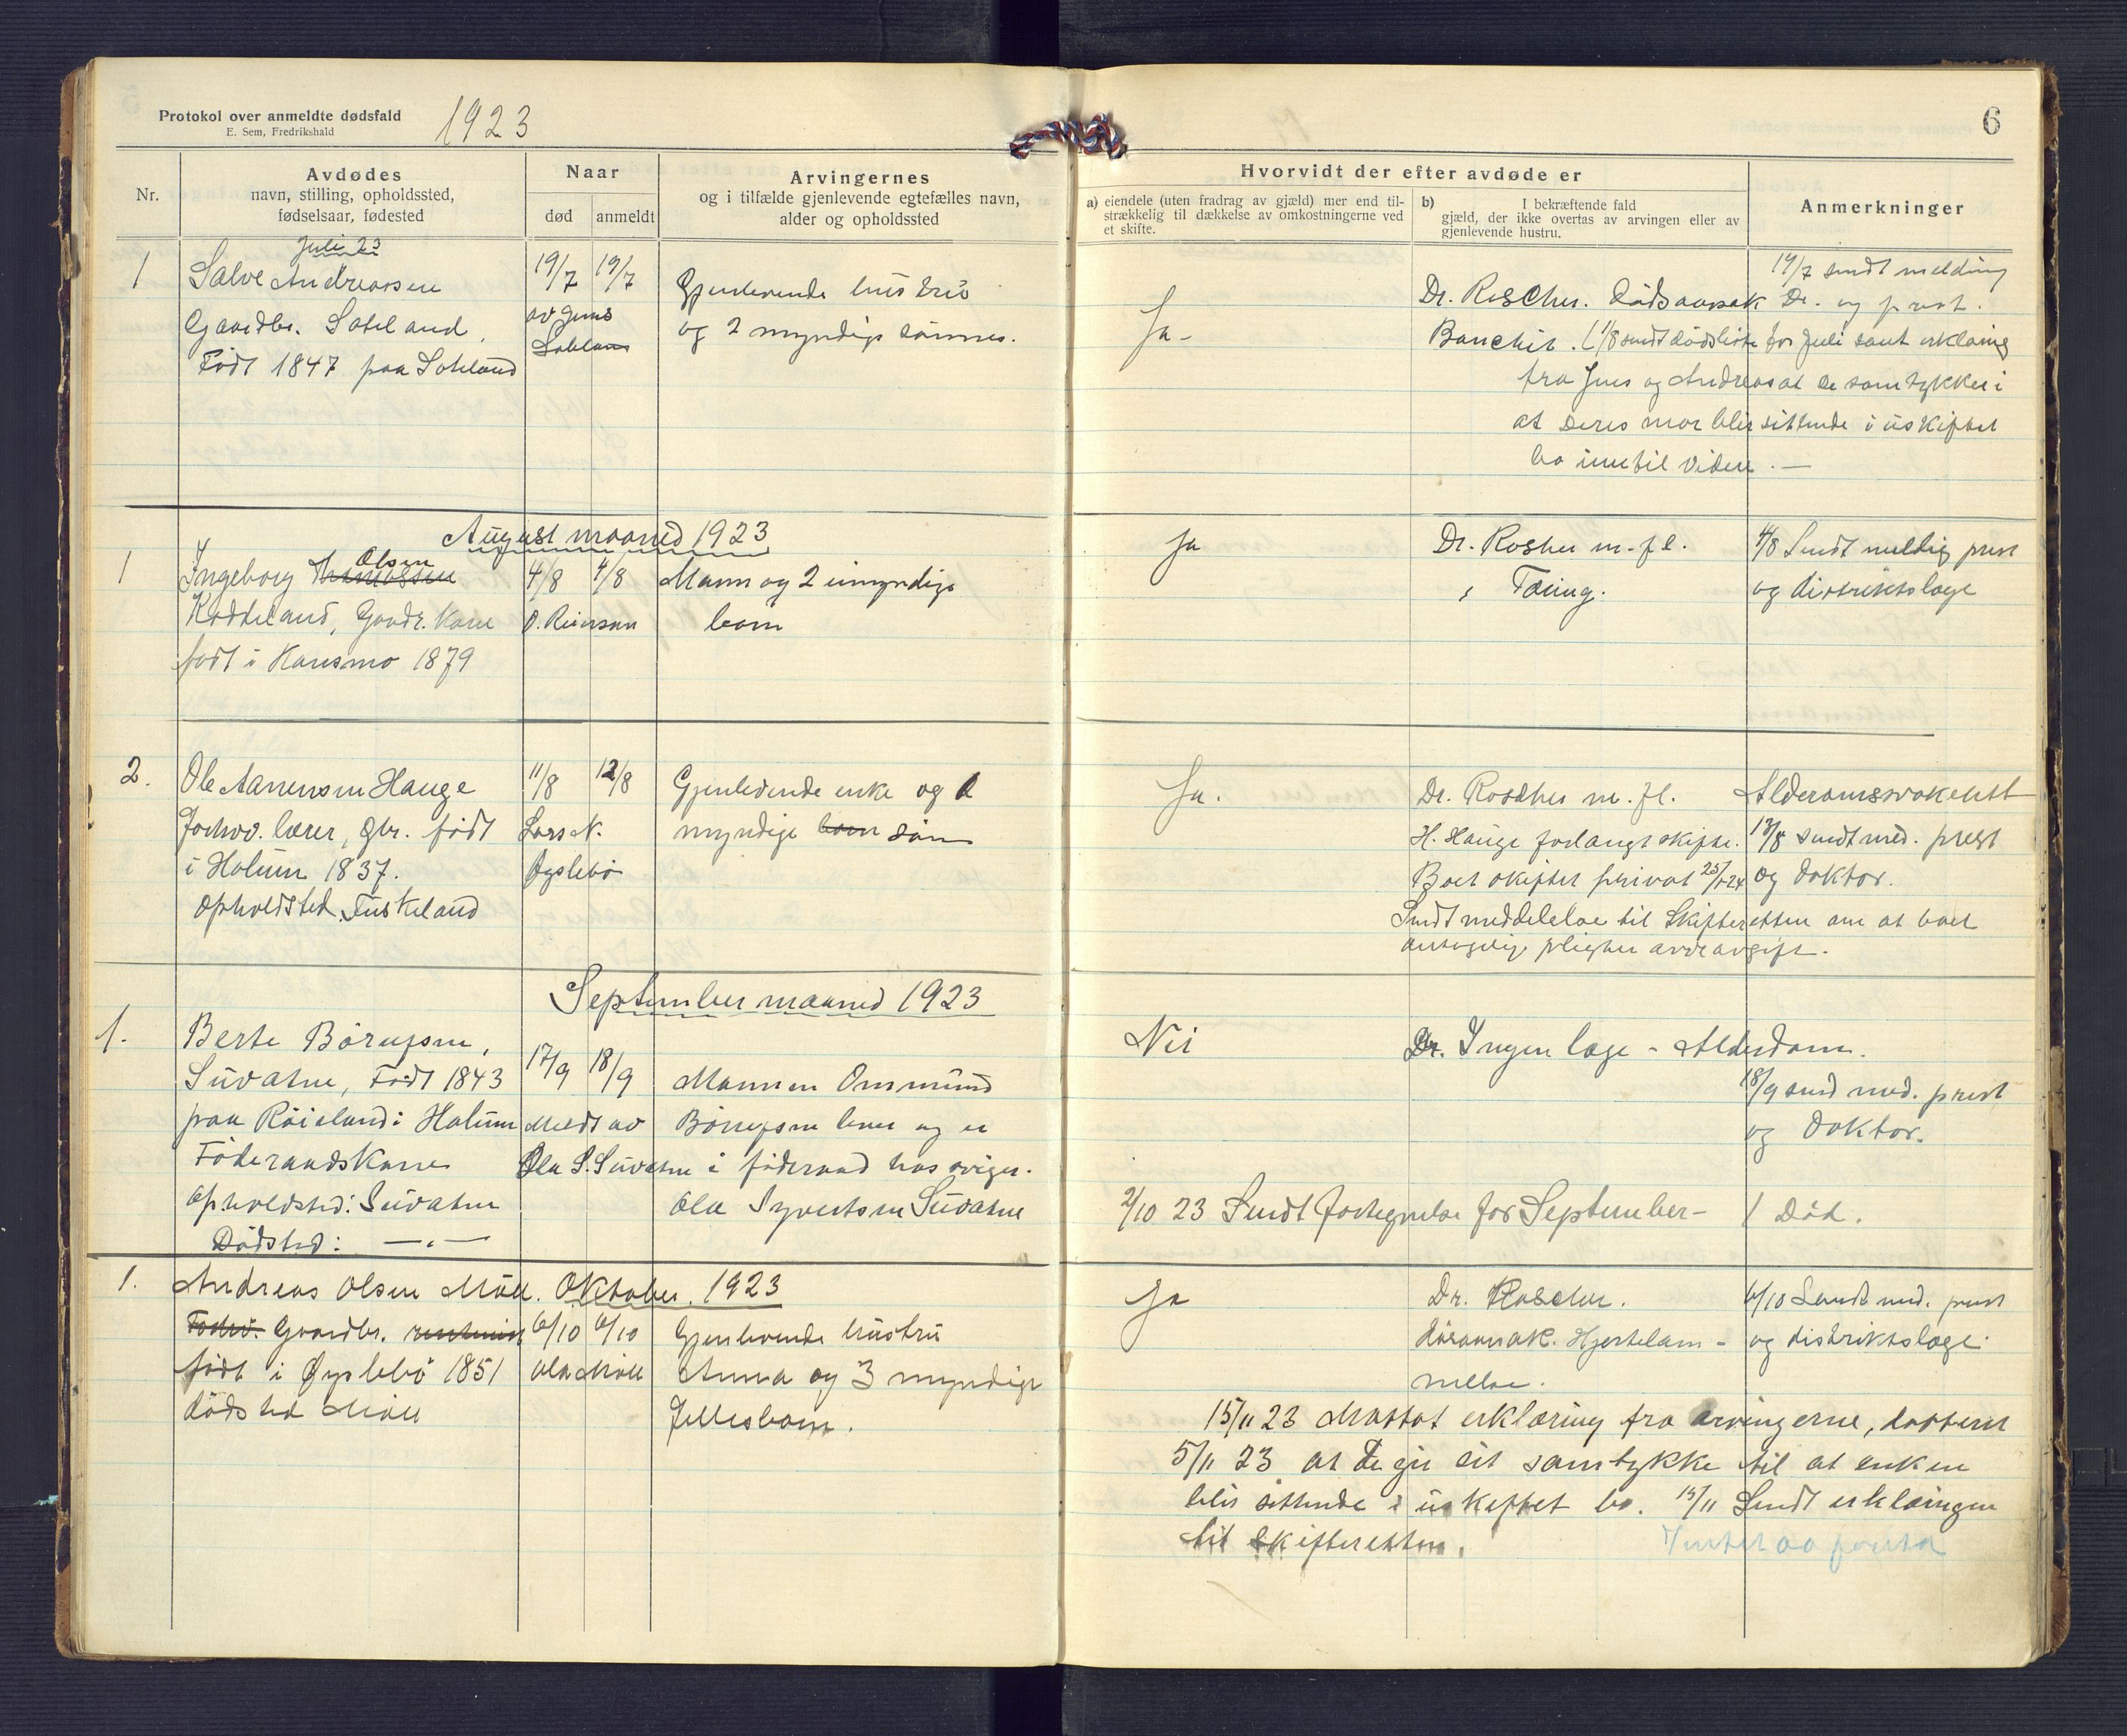 Protokol over anmeldte dødsfald
E. Sem, Fredrikshald
1923
6
Nr.
Avdødes
navn, stilling, opholdssted,
fødselsaar, fødested
Naar
død
anmeldt
Arvingernes
og i tilfælde gjenlevende egtefælles navn,
alder og opholdssted
Hvorvidt der efter avdøde er
a) eiendele (uten fradrag av gjæld) mer end til-
strækkelig til dækkelse av omkostningerne ved
et skifte.
b) I bekræftende fald
gjæld, der ikke overtas av arvingen eller av
gjenlevende hustru.
Anmerkninger
Juli 23
1
Salve Andreassen
Gaardbr.
Født 1847 paa
19/7 19/7
av Jens
Gjenlevende hustru
og 2 myndige sønner.
Ja-
Dr. Roscher. Dødsaarsak
Bronchit.
19/7 sendt melding
Dr. og prest.
1/8 sendt dødsliste for Juli samt erklæring
fra Jens og Andreas at de samtykker i
at deres mor blir sittende i uskiftet
bo inntil videre. —
August maaned 1923
1
Ingeborg Thomassen Olsen
Gaardr. Kone
født i Kansmo 1879
4/8 4/8
O. Reiersen
Mann og 2 umyndige
barn
Ja
Dr. Rosher m. fl.
Tæring.
4/8 Sendt melding prest
og distriktslæge
2.
Ole Aanensen Hauge
Forhv. lærer, gbr. født
i Holum 1837.
opholdsted. Tuskeland
11/8 12/8
Lars N.
Øyslebø
Gjenlevende enke og
myndige barn søn
Ja.
Dr. Roscher m. fl.
H. Hauge forlangt skifte.
Boet skiftet privat 25/1-24
Sendt meddelelse til Skifteretten om at boet
antagelig pligter arveavgift.
Alderdomssvakhet
13/8 sendt med. prest
og doktor.
September maaned 1923
1.
Berte Börufsen,
Suvatne, Født 1843
paa Röiseland i Holum
Föderaadskone
Opholdsted: Suvatne
Dödsted: — " —
17/9 18/9
Meldt av
Ola S. Suvatne
Mannen Ommund
Börufsen lever og er
i föderaad hos sviger.
Ola Syvertsen Suvatne
Nei
Dr. Ingen læge - Alderdom.
18/9 send med. prest
og Doktor.
2/10 23 Sendt fortegnelse for September - 1 Död.
Oktober. 1923
1.
Andreas Olsen Möll.
Forhv. Gaardbr.
födt i Øyslebö 1851
dödsted Möll
6/10 6/10
Ola Möll
Gjenlevende hustru
Anna og 3 myndige
fellesbarn.
Ja
Dr. Roscher.
dösaarsak. Hjertelam-
melse.
6/10 Sendt med. prest
og distriktslæge
15/11 23 Mottat erklæring fra arvingerne, datteret
5/11 23 at de gir sit samtykke til at enken
blir sittende i uskiftet bo. 15/11 Sendt erklæringen
til skifteretten.